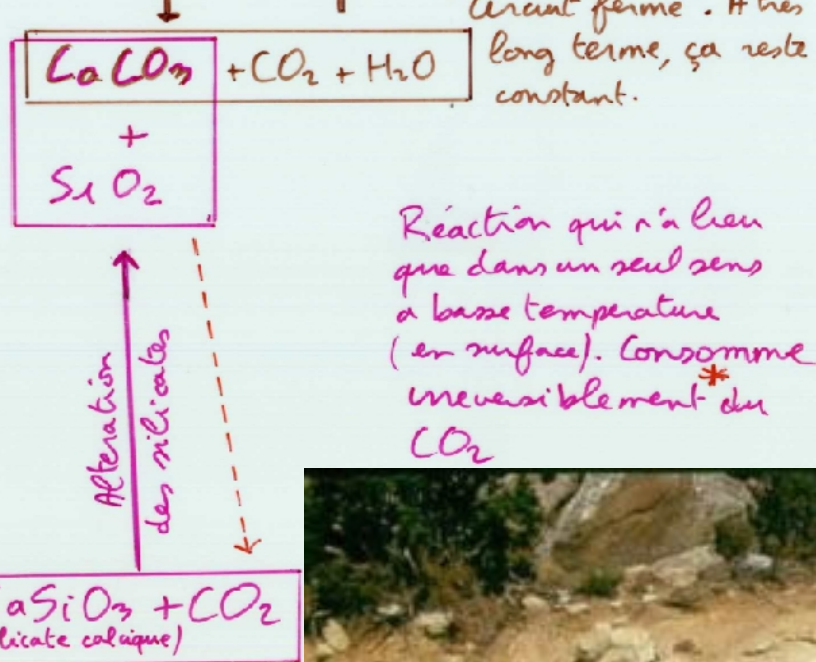 circuit fermé. A très
long terme, ça reste
constant.
CaCO3 + CO2 + H2O
+
SiO2
Réaction qui n'a lieu
que dans un seul sens
a basse température
(en surface). Consomme
irreversiblement * du
CO2
Alteration
des silicates
aSiO3 + CO2
licate calcique)